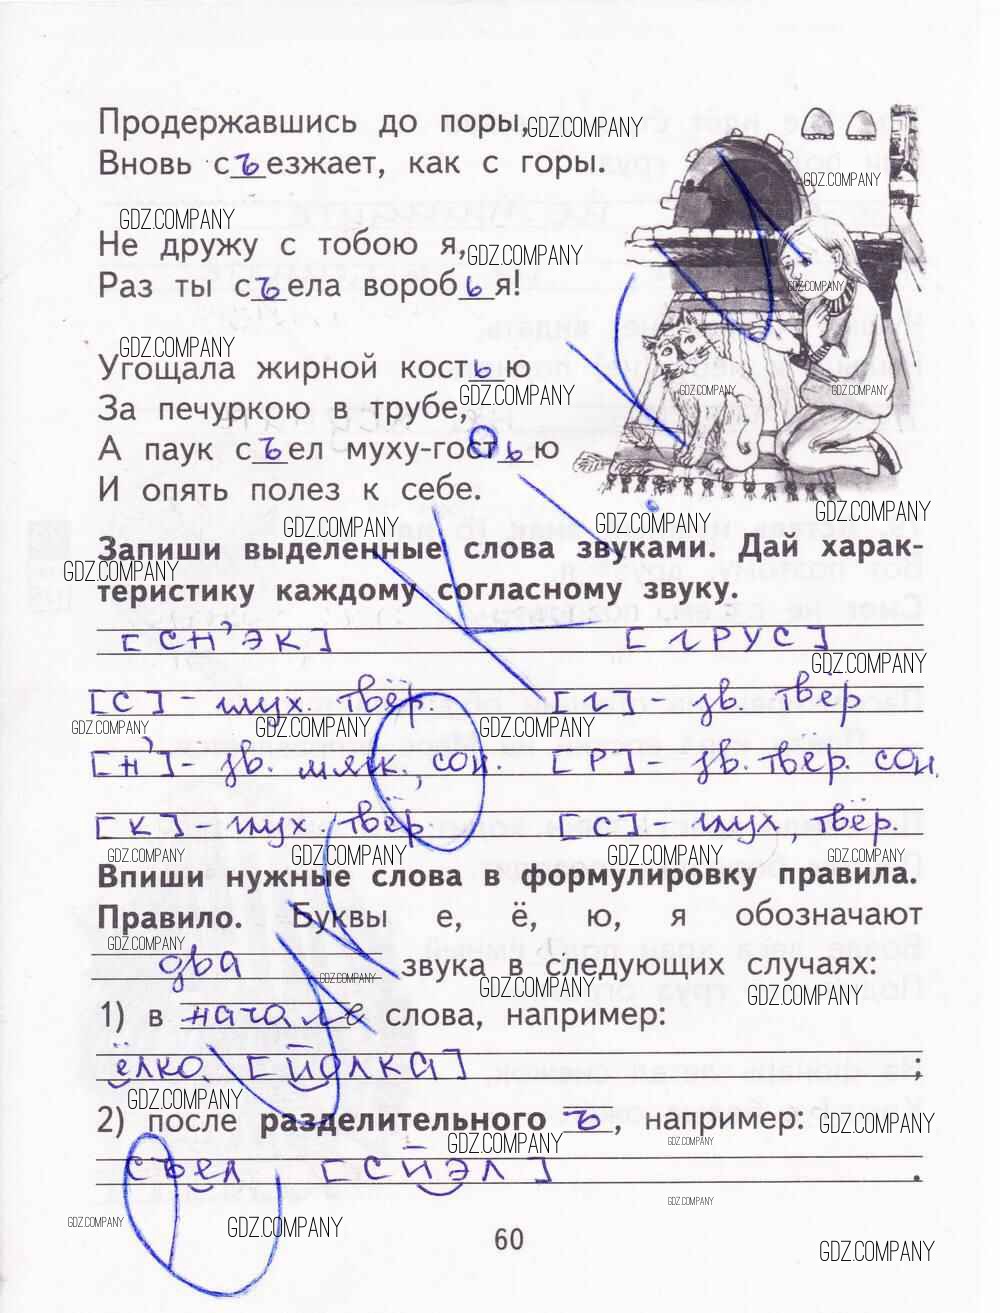 Продержавшись до поры,
Вновь съезжает, как с горы.
Не дружу с тобою я,
Раз ты съела воробья!
Угощала жирной костью
За печуркою в трубе,
А паук съел муху-гостью
И опять полез к себе.
Запиши выделенные слова звуками. Дай харак-
теристику каждому согласному звуку.
[СН'ЭК] [ГРУС]
[С] - глух. твёр. [Г] - зв. твёр
[Н'] - зв. мягк., сон. [Р] - зв. твёр. сон.
[К] - глух. твёр [С] - глух, твёр.
Впиши нужные слова в формулировку правила.
Правило. Буквы е, ё, ю, я обозначают
два звука в следующих случаях:
1) в начале слова, например:
ёлка [ЙОЛКА] ;
2) после разделительного ъ, например:
съел [СЙЭЛ] .
60
GDZ.COMPANY